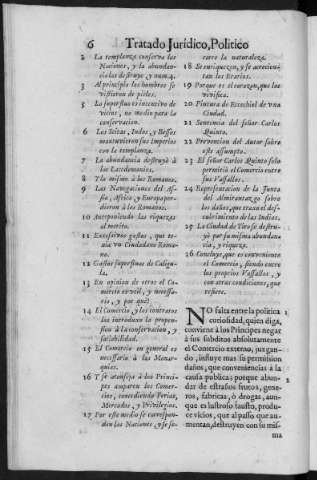 6 Tratado Jurídico, Politico
2 La templanza conserva las
Naciones, y la abundan-
cia las destruye, y num.4.
3 Al principio los hombres se
vistieron de pieles.
5 Lo superfluo es incentivo de
vicios, no medio para la
conservacion.
6 Los Scitas, Indos, y Bessos
mantuvieron sus Imperios
con la templanza.
7 La abundancia destruyò à
los Lacedemonios.
8 Y lo mismo à los Romanos.
9 Las Navegaciones del As-
sia, Africa, y Europa per-
dieron à los Romanos.
10 Anteponiendo las riquezas
al merito.
11 Excessivos gastos, que te-
nia vn Ciudadano Roma-
no.
12 Gastos superfluos de Caligu-
la.
13 En opinion de otros el Co-
mercio es vtil, y necessa-
rio, y por què?
14 El Comercio, y los contratos
los introduxo la propen-
sion à la conservacion, y
sociabilidad.
15 El Comercio en general es
necessario à las Monar-
quias.
16 Y se aconseja à los Princi-
pes amparen los Comer-
cios, concediendo Ferias,
Mercados, y Privilegios.
17 Por este medio se correspon-
den las Naciones, y se so-
corre la naturaleza.
18 Se enriquezen, y se acrecien-
tan los Erarios.
19 Porque es el corazon, que los
vivifica.
20 Pintura de Ezechiel de vna
Ciudad.
21 Sentencia del señor Carlos
Quinto.
22 Prevencion del Autor sobre
este assumpto.
23 El señor Carlos Quinto solo
permitiò el Comercio entre
sus Vassallos.
24 Representacion de la Junta
del Almirantazgo sobre
los daños, que causò el des-
cubrimiento de las Indias.
25 La Ciudad de Tiro se destru-
yò por su misma abundan-
cia, y riqueza.
26 Concluye, que es conveniente
el Comercio, siendo entre
los proprios Vassallos, y
con otras condiciones, que
refiere.
NO falta entre la politica 1
curiosidad, quien diga,
conviene à los Principes negar
à sus subditos absolutamente
el Comercio externo, juzgan-
do, influye mas su permission
daños, que conveniencias à la
causa publica; porque abun- 2
dar de estraños frutos, gene-
ros, fabricas, ò drogas, aun-
que es lustroso fausto, produ-
ce vicios, que al passo que au-
mentan, destruyen con su mis-
ma